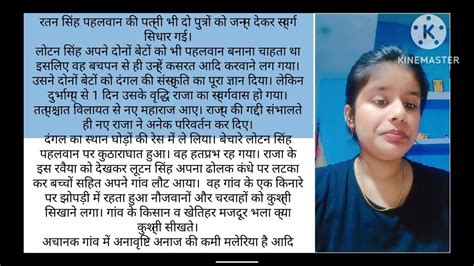 रतन सिंह पहलवान की पत्नी भी दो पुत्रों को जन्म देकर स्वर्ग
सिधार गई।
लोटन सिंह अपने दोनों बेटों को भी पहलवान बनाना चाहता था
इसलिए वह बचपन से ही उन्हें कसरत आदि करवाने लग गया।
उसने दोनों बेटों को दंगल की संस्कृति का पूरा ज्ञान दिया। लेकिन
दुर्भाग्य से 1 दिन उसके वृद्धि राजा का स्वर्गवास हो गया।
तत्पश्चात विलायत से नए महाराज आए। राज्य की गद्दी संभालते
ही नए राजा ने अनेक परिवर्तन कर दिए।
दंगल का स्थान घोड़ों की रेस में ले लिया। बेचारे लोटन सिंह
पहलवान पर कुठाराघात हुआ। वह हतप्रभ रह गया। राजा के
इस रवैया को देखकर लूटन सिंह अपना ढोलक कंधे पर लटका
कर बच्चों सहित अपने गांव लौट आया। वह गांव के एक किनारे
पर झोपड़ी में रहता हुआ नौजवानों और चरवाहों को कुश्ती
सिखाने लगा। गांव के किसान व खेतिहर मजदूर भला क्या
कुश्ती सीखते।
अचानक गांव में अनावृष्टि अनाज की कमी मलेरिया है आदि
KINEMASTER